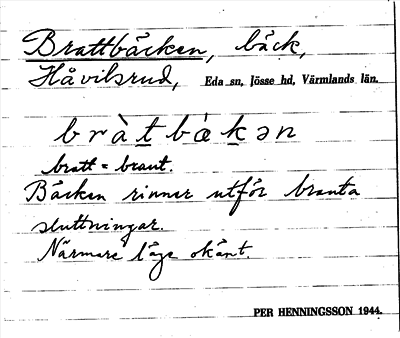 Brattbäcken, bäck,
Håvilsrud, Eda sn, Jösse hd, Värmlands län.
bràtbàkən
bratt = brant.
Bäcken rinner utför branta
sluttningar.
Närmare läge okänt.
PER HENNINGSSON 1944.